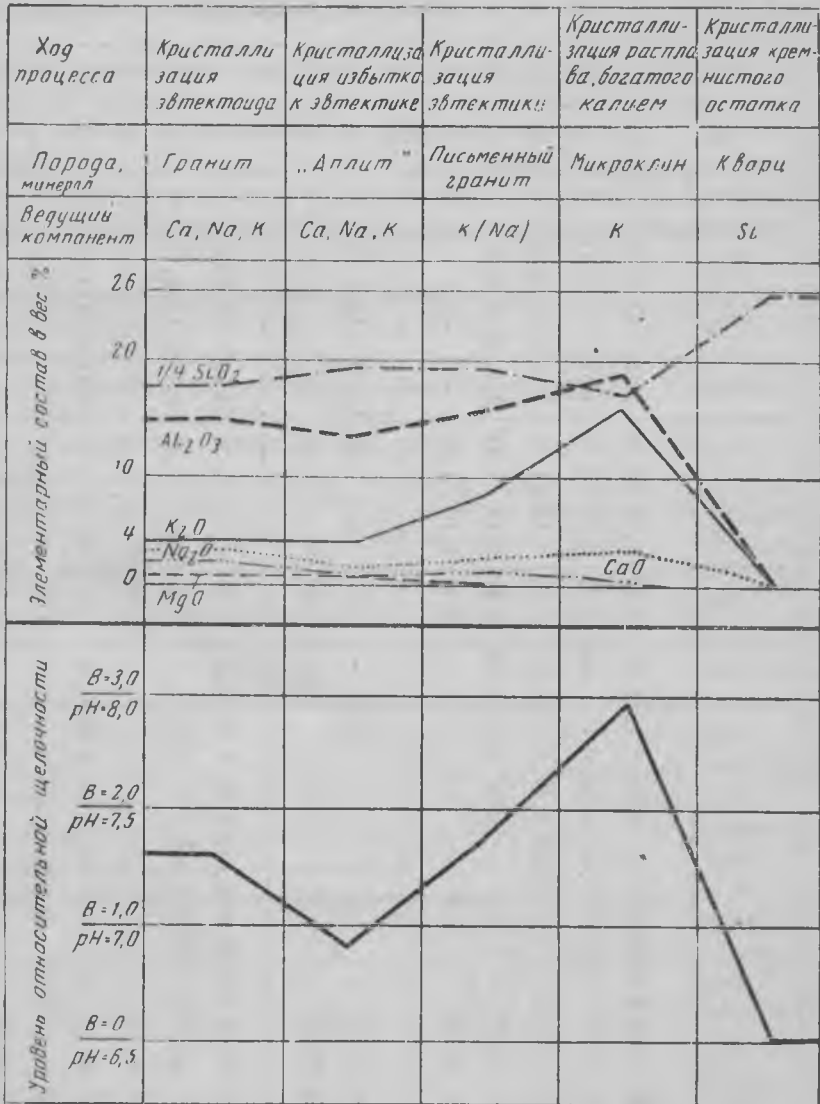 Ход
процесса
Кристалли
зация
эвтектоида
Кристаллиза
ция избытка
к эвтектике
Кристалли-
зация
эвтектики
Кристалли-
зация распла
ва, богатого
калием
Кристалли-
зация крем-
нистого
остатка
Порода,
минерал
Гранит
„Аплит"
Письменный
гранит
Микроклин
Кварц
Ведущии
компонент
Ca, Na, K
Ca, Na, K
K (Na)
K
Si
Элементарный состав в вес %
26
20
10
4
0
1/4 SiO₂
Al₂O₃
K₂O
Na₂O
MgO
CaO
Уровень относительной щелочности
B=3,0
pH=8,0
B=2,0
pH=7,5
B=1,0
pH=7,0
B=0
pH=6,5